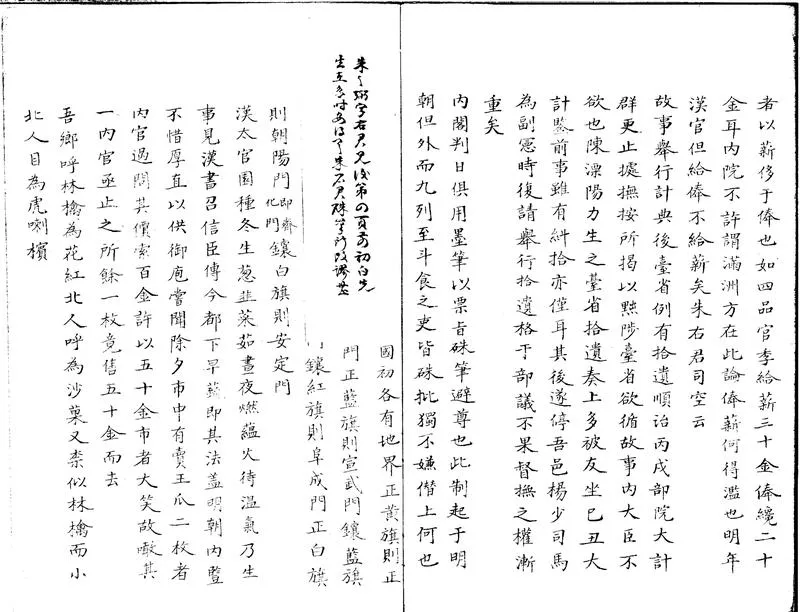 者以薪侈于俸也如四品官季給薪三十金俸纔二十
金耳内院不許謂滿洲方在此論俸薪何得濫也明年
漢官但給俸不給薪矣朱右君司空云
故事舉行計典後臺省例有拾遺順治丙戌部院大計
群吏止據撫按所揭以黜陟臺省欲循故事内大臣不
欲也陳溧陽力主之臺省拾遺奏上多被友坐己丑大
計鑒前事雖有糾拾亦僅耳其後遂停吾邑楊少司馬
為副憲時復請舉行拾遺格于部議不果督撫之權漸
重矣
内閣判日俱用墨筆以票旨硃筆避尊也此制起于明
朝但外而九列至斗食之吏皆硃批獨不嫌僭上何也
國初各有地界正黄旗則正
門正藍旗則宣武門鑲藍旗
鑲紅旗則阜成門正白旗
則朝陽門即齊化門鑲白旗則安定門
漢太官園種冬生葱韭菜茹晝夜燃蘊火待温氣乃生
事見漢書召信臣傳今都下早蔬即其法蓋明朝内監
不惜厚直以供御庖嘗聞除夕市中有賣王瓜二枚者
内官過問其價索百金許以五十金市者大笑故噉其
一内官亟止之所餘一枚竟售五十金而去
吾鄉呼林檎為花紅北人呼為沙菓又柰似林檎而小
北人目為虎喇檳